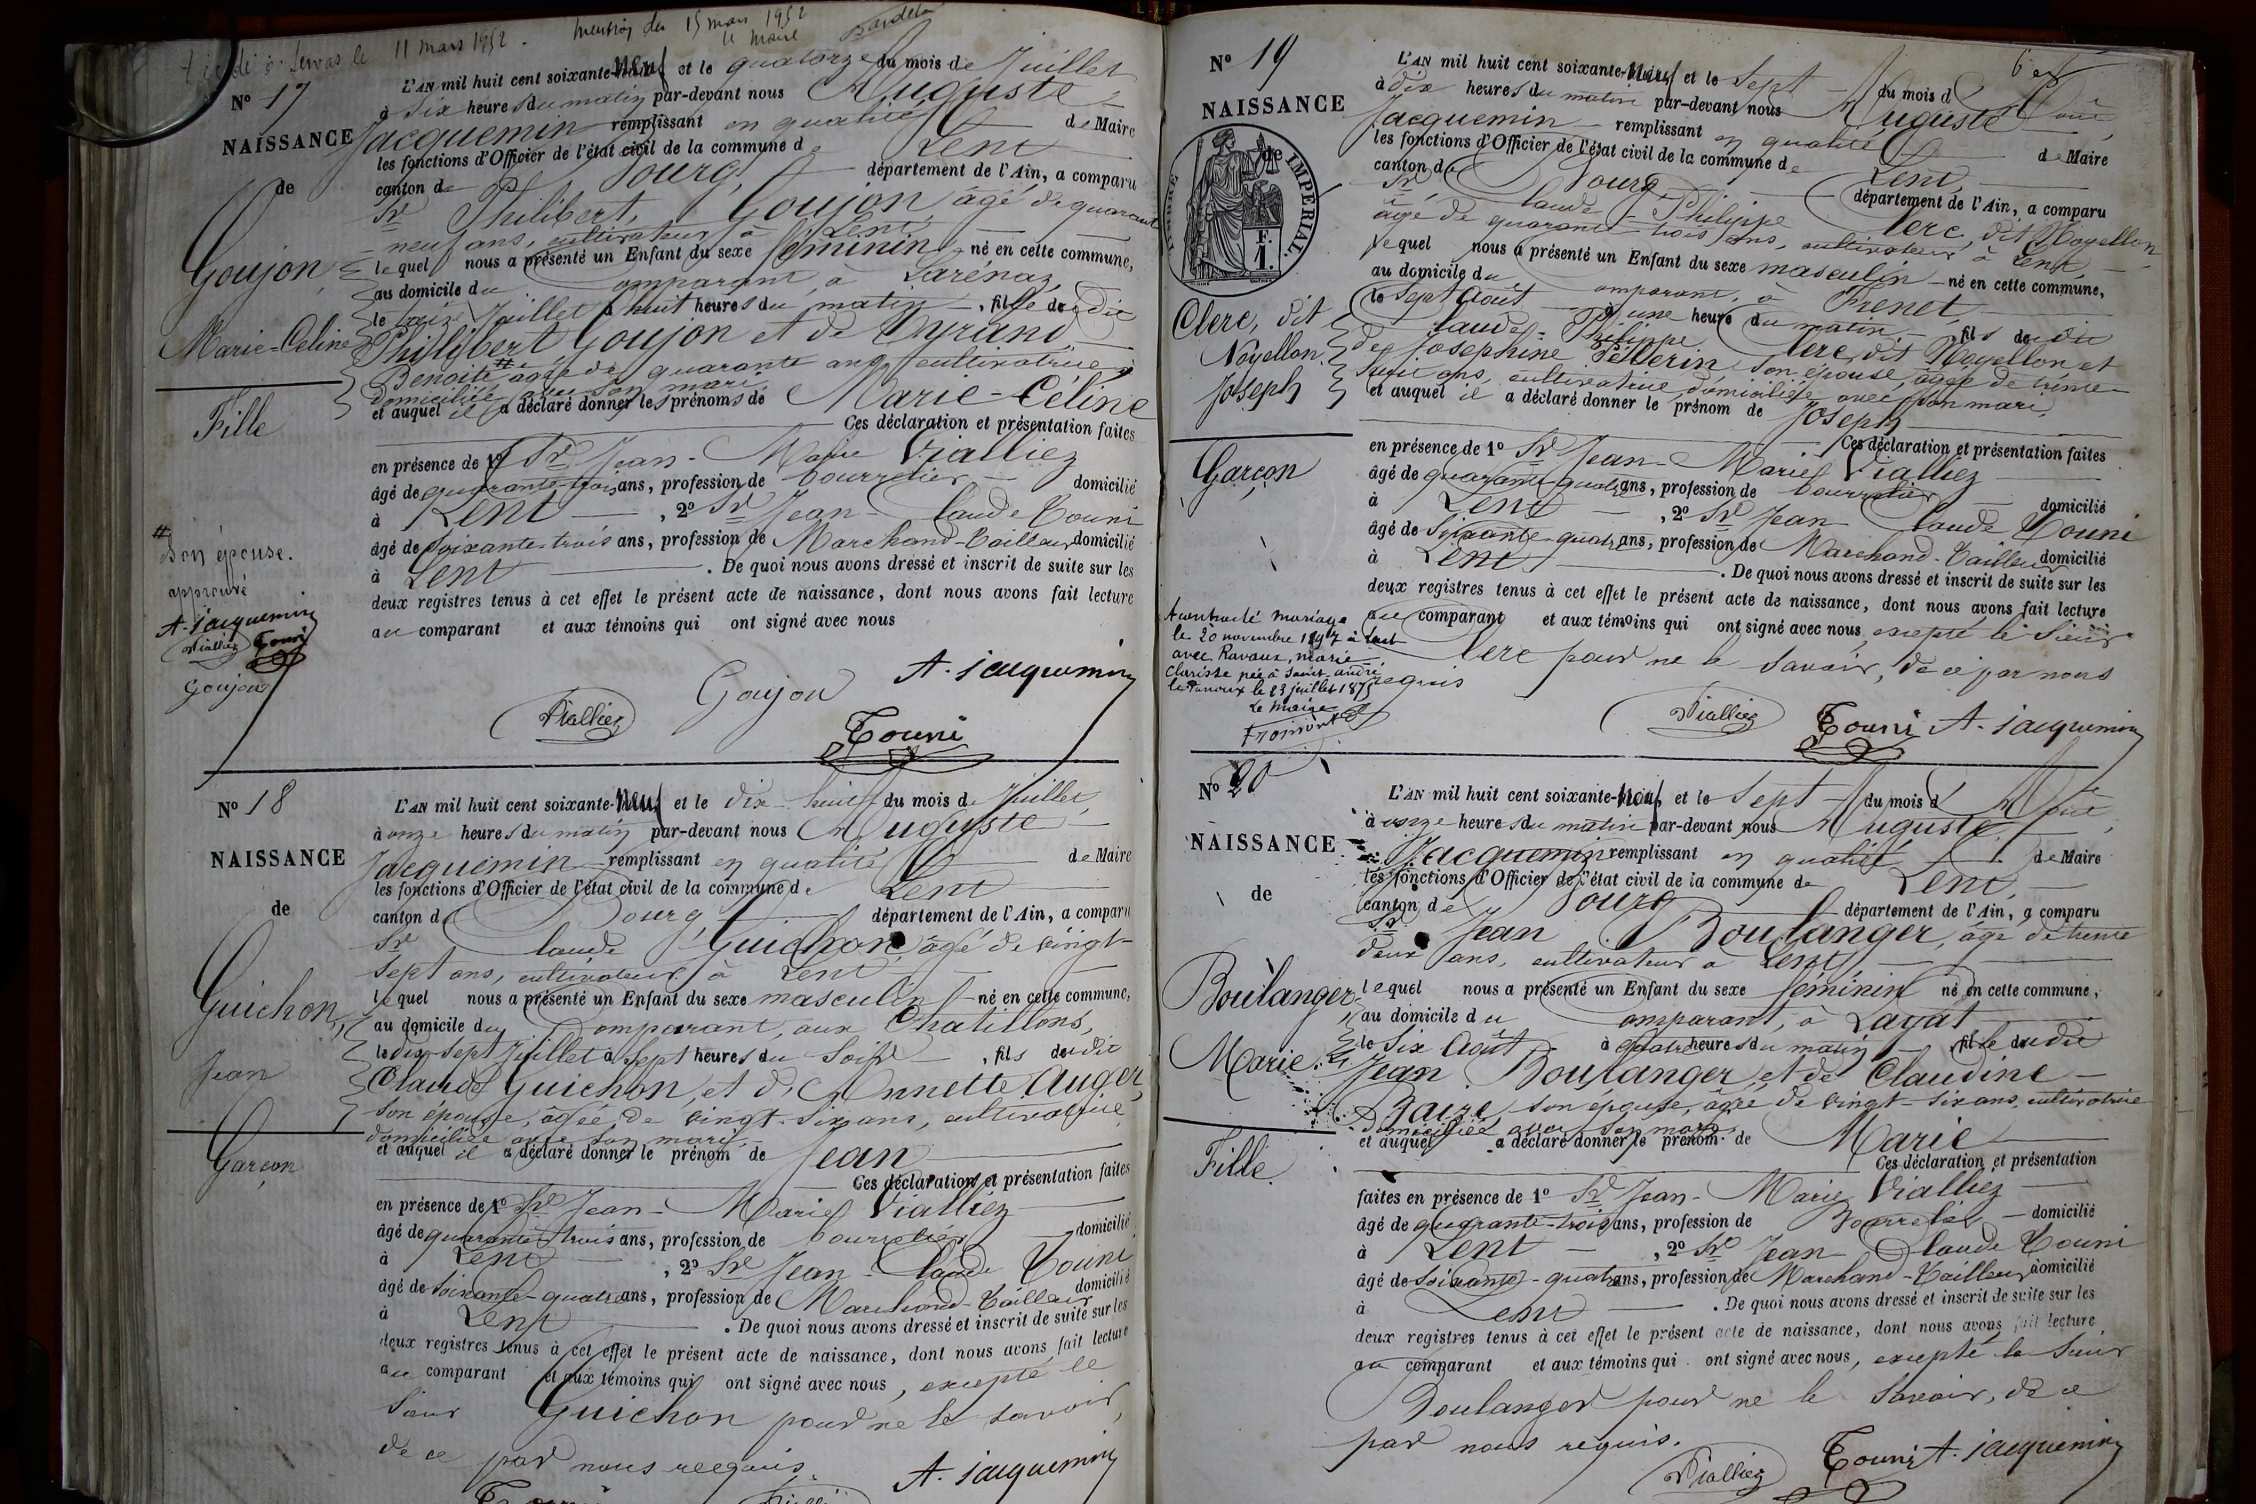 Servas le 11 mars 1952. Mention du 15 mars 1952
le Maire
N° 17
NAISSANCE
de
Goujon,
Marie-Céline
Fille
L'AN mil huit cent soixante-neuf et le quatorze du mois de Juillet
à six heures du matin par-devant nous Auguste
Jacquemin remplissant en qualité de Maire
les fonctions d'Officier de l'état civil de la commune de Lent
canton de Bourg, département de l'Ain, a comparu
Sr Philibert Goujon âgé de quarante
neuf ans, cultivateur à Lent,
lequel nous a présenté un Enfant du sexe féminin né en cette commune,
au domicile du Comparant, à Larénaz,
le treize Juillet à huit heures du matin, fille dudit
Philibert Goujon et de Tyrand
Benoite # âgée de quarante ans, cultivatrice
domiciliée avec son mari,
et auquel il a déclaré donner les prénoms de Marie-Céline
Ces déclaration et présentation faites
en présence de 1° Sr Jean-Marie Vialliez
âgé de quarante-trois ans, profession de bourrelier domicilié
à Lent, 2° Sr Jean-Claude Touni
âgé de soixante-trois ans, profession de Marchand-Tailleur domicilié
à Lent. De quoi nous avons dressé et inscrit de suite sur les
deux registres tenus à cet effet le présent acte de naissance, dont nous avons fait lecture
au comparant et aux témoins qui ont signé avec nous
# Son épouse.
approuvé
A. Jacquemin
Vialliez Touni
Goujon
Goujon A. Jacquemin
Vialliez Touni
N° 18
NAISSANCE
de
Guichon,
Jean
Garçon
L'AN mil huit cent soixante-neuf et le dix-huit du mois de Juillet,
à onze heures du matin par-devant nous Auguste
Jacquemin remplissant en qualité de Maire
les fonctions d'Officier de l'état civil de la commune de Lent
canton de Bourg, département de l'Ain, a comparu
Sr Claude Guichon, âgé de vingt-
sept ans, cultivateur à Lent,
lequel nous a présenté un Enfant du sexe masculin né en cette commune,
au domicile du Comparant, aux Chatillons,
le dix-sept Juillet à sept heures du soir, fils dudit
Claude Guichon, et de Annette Auger,
son épouse, âgée de vingt-six ans, cultivatrice
domiciliée avec son mari,
et auquel il a déclaré donner le prénom de Jean
Ces déclaration et présentation faites
en présence de 1° Sr Jean-Marie Vialliez
âgé de quarante-trois ans, profession de bourrelier domicilié
à Lent, 2° Sr Jean-Claude Touni
âgé de soixante-quatre ans, profession de Marchand-Tailleur domicilié
à Lent. De quoi nous avons dressé et inscrit de suite sur les
deux registres tenus à cet effet le présent acte de naissance, dont nous avons fait lecture
au comparant et aux témoins qui ont signé avec nous, excepté le
Sieur Guichon pour ne le savoir,
de ce par nous requis.
A. Jacquemin
N° 19
NAISSANCE
de
TIMBRE IMPERIAL.
F.
1.
Clerc, dit
Noyellon
Joseph
Garçon
L'AN mil huit cent soixante-neuf et le sept du mois d'Août
à dix heures du matin par-devant nous Auguste
Jacquemin remplissant en qualité de Maire
les fonctions d'Officier de l'état civil de la commune de Lent,
canton de Bourg, département de l'Ain, a comparu
Sr Claude-Philippe Clerc, dit Noyellon,
âgé de quarante-trois ans, cultivateur à Lent,
lequel nous a présenté un Enfant du sexe masculin né en cette commune,
au domicile du Comparant, à Frenet,
le sept Août à une heure du matin fils dudit
Claude-Philippe Clerc, dit Noyellon et
de Josephine Pellerin, son épouse, âgée de trente
huit ans, cultivatrice, domiciliée avec son mari,
et auquel il a déclaré donner le prénom de Joseph
Ces déclaration et présentation faites
en présence de 1° Sr Jean-Marie Vialliez
âgé de quarante-quatre ans, profession de bourrelier domicilié
à Lent, 2° Sr Jean Claude Touni
âgé de soixante-quatre ans, profession de Marchand-Tailleur domicilié
à Lent. De quoi nous avons dressé et inscrit de suite sur les
deux registres tenus à cet effet le présent acte de naissance, dont nous avons fait lecture
au comparant et aux témoins qui ont signé avec nous, excepté le Sieur
Clerc pour ne le savoir, de ce par nous
requis
A contracté mariage
le 20 novembre 1897 à Lent
avec Ravaux, Marie
Clariste née à Saint-André
le Panoux le 23 juillet 1875
Le Maire
Vialliez Touni A. Jacquemin
N° 20
NAISSANCE
de
Boulanger,
Marie
Fille
L'AN mil huit cent soixante-neuf et le sept du mois d'Août,
à onze heures du matin par-devant nous Auguste
Jacquemin remplissant en qualité de Maire
les fonctions d'Officier de l'état civil de la commune de Lent,
canton de Bourg département de l'Ain, a comparu
Sr Jean Boulanger, âgé de trente
deux ans, cultivateur à Lent,
lequel nous a présenté un Enfant du sexe féminin né en cette commune,
au domicile du Comparant, à Layat
le six Août à quatre heures du matin fille dudit
Jean Boulanger, et de Claudine
Baize, son épouse, âgée de vingt-six ans, cultivatrice
domiciliée avec son mari,
et auquel a déclaré donner le prénom de Marie
Ces déclaration et présentation
faites en présence de 1° Sr Jean-Marie Vialliez
âgé de quarante-trois ans, profession de Bourrelier domicilié
à Lent, 2° Sr Jean-Claude Touni
âgé de soixante-quatre ans, profession de Marchand-Tailleur domicilié
à Lent. De quoi nous avons dressé et inscrit de suite sur les
deux registres tenus à cet effet le présent acte de naissance, dont nous avons fait lecture
au comparant et aux témoins qui ont signé avec nous, excepté le Sieur
Boulanger pour ne le savoir, de ce
par nous requis.
Vialliez Touni A. Jacquemin